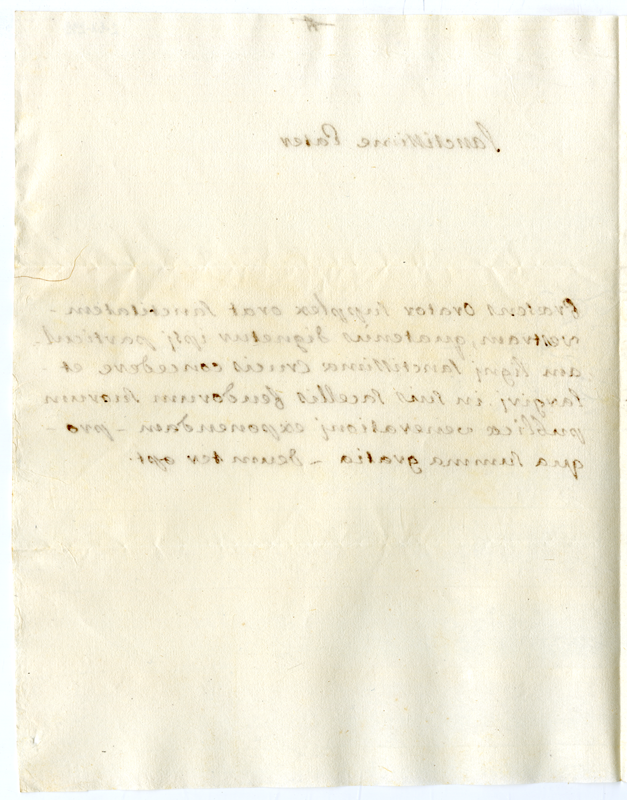 Sanctissime Pater
Præsens Orator supplex orat sanctitatem -
vestram, quatenus dignetur ipsj particul-
am lignj sanctissimæ Crucis concedere et
largirj in suis sacellis feudorum suorum
publicæ venerationj exponendam - pro -
qua summa gratia - Deum ter opt.